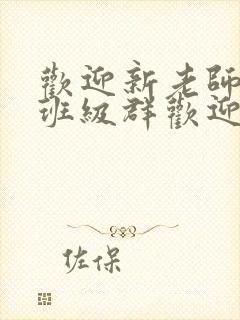 歡迎新老師
班級群歡迎
佐保